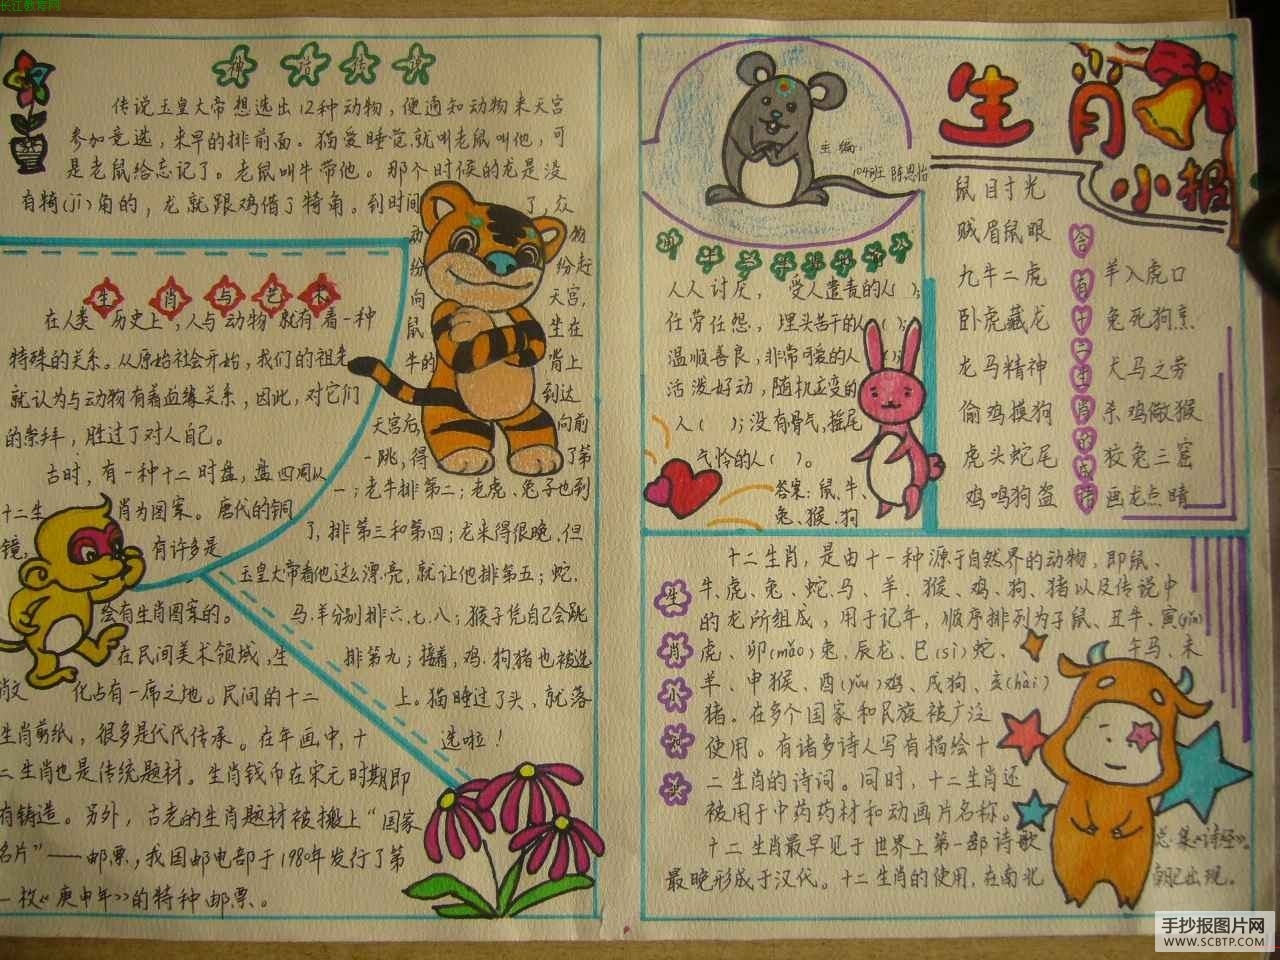 长江教育网
神话传说
传说玉皇大帝想选出12种动物，便通知动物来天宫
参加竞选，来早的排前面。猫爱睡觉就叫老鼠叫他，可
是老鼠给忘记了。老鼠叫牛带他。那个时候的龙是没
有犄(jī)角的，龙就跟鸡借了犄角。到时间了，众
动物
纷纷赶
向天宫，
鼠坐在
牛的背上
到达
天宫后，向前
一跳，得了第
一；老牛排第二；老虎、兔子也到
了，排第三和第四；龙来得很晚，但
玉皇大帝看他这么漂亮，就让他排第五；蛇、
马、羊分别排六、七、八；猴子凭自己会跳
排第九；接着，鸡、狗猪也被选
上。猫睡过了头，就落
选啦！
生肖与艺术
在人类历史上，人与动物就有着一种
特殊的关系。从原始社会开始，我们的祖先
就认为与动物有着血缘关系，因此，对它们
的崇拜，胜过了对人自己。
古时，有一种十二时盘，盘四周以
十二生肖为图案。唐代的铜
镜，有许多是
绘有生肖图案的。
在民间美术领域，生
肖文化占有一席之地。民间的十二
生肖剪纸，很多是代代传承。在年画中，十
二生肖也是传统题材。生肖钱币在宋元时期即
有铸造。另外，古老的生肖题材被搬上“国家
名片”——邮票，我国邮电部于1980年发行了第
一枚《庚申年》的特种邮票。
主编：
104班 陈思怡
生肖
小报
人人讨厌，受人谴责的人( )；
任劳任怨，埋头苦干的人( )；
温顺善良，非常可爱的人( )；
活泼好动，随机应变的
人( )；没有骨气，摇尾
气怜的人( )。
答案：鼠、牛、
兔、猴、狗
含有十二生肖的成语
鼠目寸光
贼眉鼠眼
九牛二虎
卧虎藏龙
龙马精神
偷鸡摸狗
虎头蛇尾
鸡鸣狗盗
羊入虎口
兔死狗烹
犬马之劳
杀鸡儆猴
狡兔三窟
画龙点睛
十二生肖，是由十一种源于自然界的动物，即鼠、
牛、虎、兔、蛇、马、羊、猴、鸡、狗、猪以及传说中
的龙所组成，用于记年，顺序排列为子鼠、丑牛、寅(yín)
虎、卯(mǎo)兔、辰龙、巳(sì)蛇、午马、未
羊、申猴、酉(yǒu)鸡、戌狗、亥(hài)
猪。在多个国家和民族被广泛
使用。有诸多诗人写有描绘十
二生肖的诗词。同时，十二生肖还
被用于中药药材和动画片名称。
十二生肖最早见于世界上第一部诗歌总集《诗经》。
最晚形成于汉代。十二生肖的使用，在南北朝已出现。
手抄报图片网
WWW.SCBTP.COM